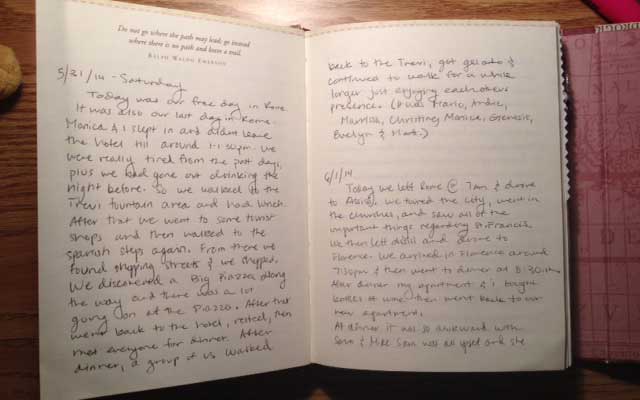 Do not go where the path may lead; go instead
where there is no path and leave a trail.
RALPH WALDO EMERSON
5/31/14 - Saturday
Today was our free day in Rome.
It was also our last day in Rome.
Monica & I slept in and didnt leave
the hotel till around 1-1:30pm. We
were really tired from the past days,
plus we had gone out drinking the
night before. So we walked to the
Trevi fountain area and had lunch.
After that we went to some tourist
shops and then walked to the
spanish steps again. From there we
found shopping streets & we shopped.
We discovered a Big Piazza along
the way and there was a lot
going on at the Piazza. After that
went back to the hotel, rested, then
met everyone for dinner. After
dinner, a group of us walked
back to the Trevi, got gelato &
continued to walk for a while
longer just enjoying eachothers
presence. (It was Mario, Andre,
Marrisa, Christina, Monica, Genesis,
Evelyn & Mark.)
6/1/14
Today we left Rome @ 7am & drove
to Assisi. We toured the city, went in
the churches, and saw all of the
important things regarding St. Francis.
We then left Assisi and drove to
Florence. We arrived in Florence around
7:30pm & then went to dinner at 8:30pm.
After dinner my apartment & I bought
bottles of wine then went back to our
new apartment.
At dinner it was so awkward with
& Mike was all upset and she